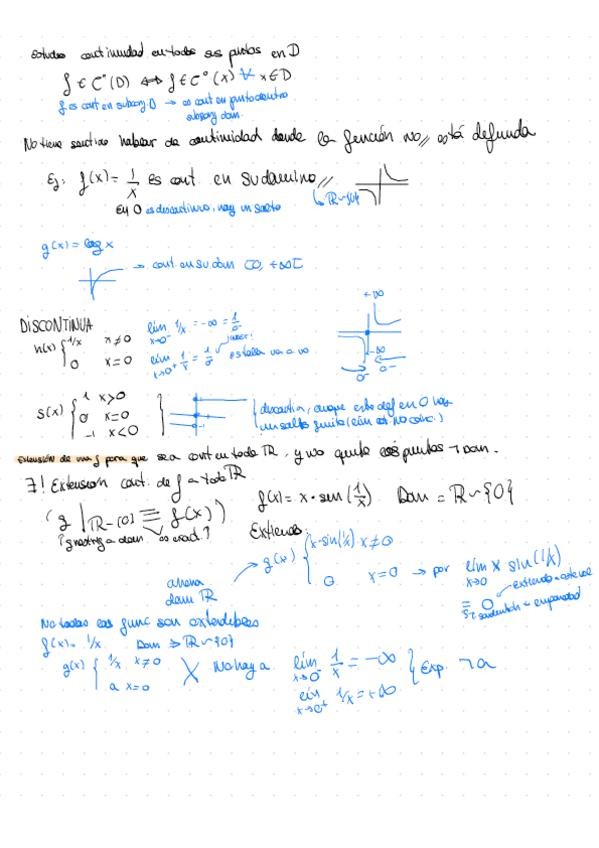 continuidad en todos sus puntos en D
f ∈ C°(D) ⟺ f ∈ C°(x) ∀ x ∈ D
f es cont en subconj D → es cont en punto dentro
subconj dom.
No tiene sentido hablar de continuidad donde la función no está definida
Ej: f(x) = 1/x es cont. en su dominio
ℝ∼{0}
En 0 es discontinuo, hay un salto
g(x) = log x
→ cont. en su dom ]0, +∞[
DISCONTINUA
h(x) { 1/x x≠0
0 x=0
lím x→0⁻ 1/x = -∞ = 1/0⁻
lím x→0⁺ 1/x = 1/0
+∞
-∞
0⁻ 0⁺
s(x) { 1 x>0
0 x=0
-1 x<0
discontin, aunque este def en 0 hay
un salto finito
Extensión de una f para que sea cont en todo ℝ, y no quite los puntos ¬ dom.
∃! Extensión cont. de f a todo ℝ
f(x) = x · sin(1/x) Dom = ℝ∼{0}
(g |ℝ-{0} ≡ f(x))
Extiendo:
g(x) { x·sin(1/x) x≠0
0 x=0 → por lím x→0 x sin(1/x)
= 0
ahora
dom ℝ
No todas las func son extendibles
f(x) = 1/x Dom → ℝ∼{0}
g(x) { 1/x x≠0
a x=0
No hay a
lím x→0⁻ 1/x = -∞
lím x→0⁺ 1/x = +∞
} Exp. ¬a